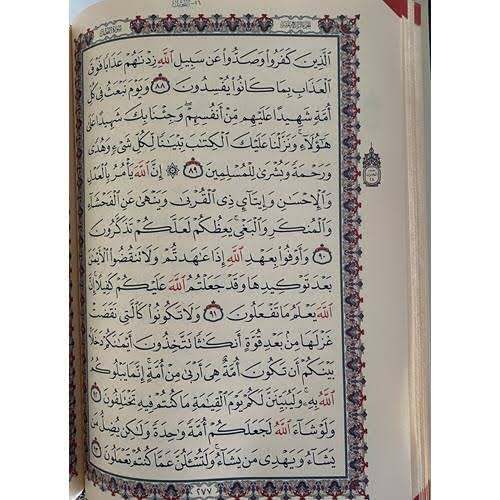 الَّذِينَ كَفَرُوا۟ وَصَدُّوا۟ عَن سَبِيلِ اللَّهِ زِدْنَـٰهُمْ عَذَابًا فَوْقَ
الْعَذَابِ بِمَا كَانُوا۟ يُفْسِدُونَ ٨٨ وَيَوْمَ نَبْعَثُ فِى كُلِّ
أُمَّةٍ شَهِيدًا عَلَيْهِم مِّنْ أَنفُسِهِمْ وَجِئْنَا بِكَ شَهِيدًا عَلَىٰ
هَـٰٓؤُلَآءِ وَنَزَّلْنَا عَلَيْكَ الْكِتَـٰبَ تِبْيَـٰنًا لِّكُلِّ شَىْءٍ وَهُدًى
وَرَحْمَةً وَبُشْرَىٰ لِلْمُسْلِمِينَ ٨٩ ۞ إِنَّ اللَّهَ يَأْمُرُ بِالْعَدْلِ
وَالْإِحْسَـٰنِ وَإِيتَآئِ ذِى الْقُرْبَىٰ وَيَنْهَىٰ عَنِ الْفَحْشَآءِ
وَالْمُنكَرِ وَالْبَغْىِ يَعِظُكُمْ لَعَلَّكُمْ تَذَكَّرُونَ
٩٠ وَأَوْفُوا۟ بِعَهْدِ اللَّهِ إِذَا عَـٰهَدتُّمْ وَلَا تَنقُضُوا۟ الْأَيْمَـٰنَ
بَعْدَ تَوْكِيدِهَا وَقَدْ جَعَلْتُمُ اللَّهَ عَلَيْكُمْ كَفِيلًا إِنَّ
اللَّهَ يَعْلَمُ مَا تَفْعَلُونَ ٩١ وَلَا تَكُونُوا۟ كَالَّتِى نَقَضَتْ
غَزْلَهَا مِنۢ بَعْدِ قُوَّةٍ أَنكَـٰثًا تَتَّخِذُونَ أَيْمَـٰنَكُمْ دَخَلًۢا
بَيْنَكُمْ أَن تَكُونَ أُمَّةٌ هِىَ أَرْبَىٰ مِنْ أُمَّةٍ إِنَّمَا يَبْلُوكُمُ
اللَّهُ بِهِۦ وَلَيُبَيِّنَنَّ لَكُمْ يَوْمَ الْقِيَـٰمَةِ مَا كُنتُمْ فِيهِ تَخْتَلِفُونَ ٩٢
وَلَوْ شَآءَ اللَّهُ لَجَعَلَكُمْ أُمَّةً وَٰحِدَةً وَلَـٰكِن يُضِلُّ مَن
يَشَآءُ وَيَهْدِى مَن يَشَآءُ وَلَتُسْـَٔلُنَّ عَمَّا كُنتُمْ تَعْمَلُونَ ٩٣
٢٧٧